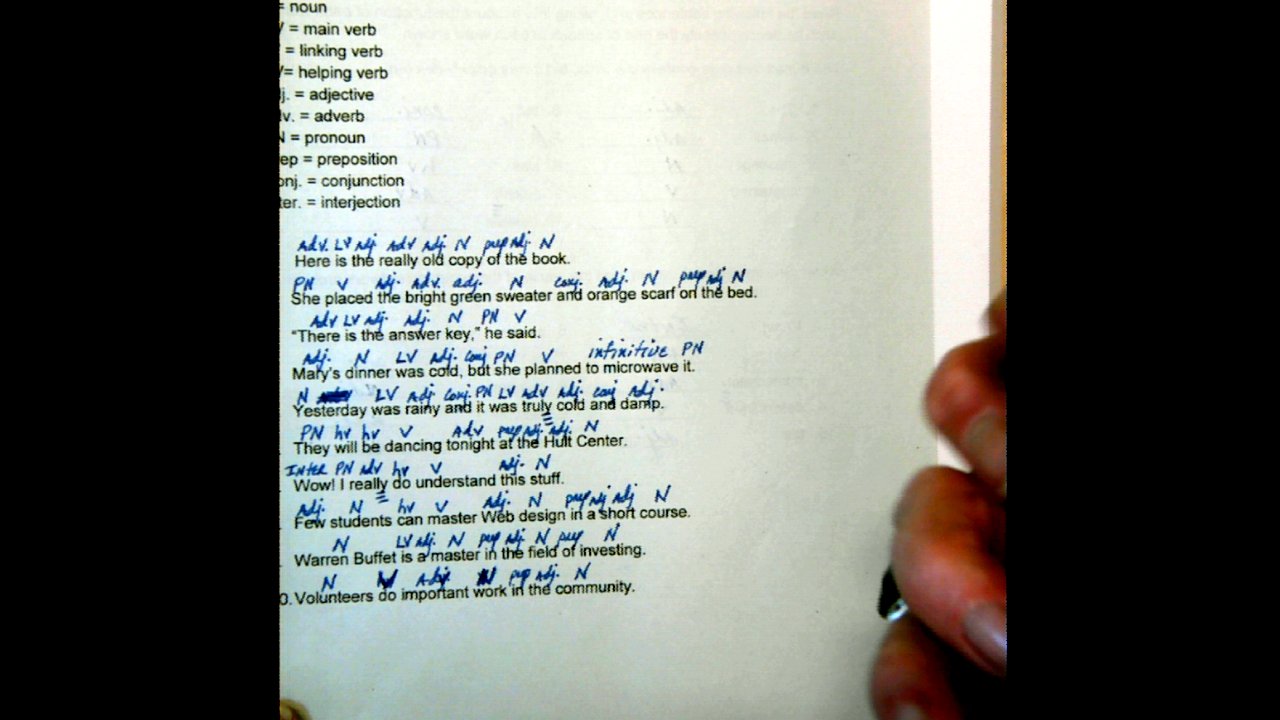 = noun
V = main verb
= linking verb
V= helping verb
j. = adjective
lv. = adverb
N = pronoun
ep = preposition
onj. = conjunction
ter. = interjection
Adv. LV Adj Adv Adj. N prep Adj. N
Here is the really old copy of the book.
PN V Adj. Adv. adj. N conj. Adj. N prep Adj N
She placed the bright green sweater and orange scarf on the bed.
Adv LV Adj. Adj. N PN V
"There is the answer key," he said.
Adj. N LV Adj. conj PN V infinitive PN
Mary's dinner was cold, but she planned to microwave it.
N LV Adj. Conj. PN LV Adv Adj. conj Adj.
Yesterday was rainy and it was truly cold and damp.
PN hv hv V Adv prep Adj. Adj. N
They will be dancing tonight at the Hult Center.
Inter PN adv hv V Adj. N
Wow! I really do understand this stuff.
Adj. N hv V Adj. N prep Adj Adj N
Few students can master Web design in a short course.
N LV Adj. N prep Adj. N prep N
Warren Buffet is a master in the field of investing.
N V Adj. N prep Adj. N
0. Volunteers do important work in the community.